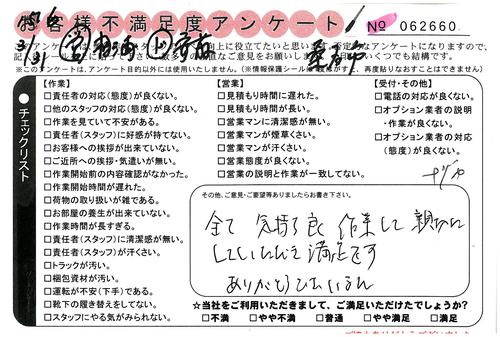 お客様不満足度アンケート
No 062660
※このアンケートは、アンケート目的以外には使用いたしません。
チェックリスト
【作業】
□責任者の対応(態度)が良くない。
□他のスタッフの対応(態度)が良くない。
□作業を見ていて不安がある。
□責任者(スタッフ)に好感が持てない。
□お客様への挨拶が出来ていない。
□ご近所への挨拶・気遣いが無い。
□作業開始前の内容確認がなかった。
□作業開始時間が遅れた。
□荷物の取り扱いが雑である。
□お部屋の養生が出来ていない。
□作業時間が長すぎる。
□責任者(スタッフ)に清潔感が無い。
□責任者(スタッフ)が汗くさい。
□トラックが汚い。
□梱包資材が汚い。
□運転が不安(下手)である。
□靴下の履き替えをしてない。
□スタッフにやる気がみられない。
【営業】
□見積もり時間に遅れた。
□見積もり時間が長い。
□営業マンに清潔感が無い。
□営業マンが煙草くさい。
□営業マンが汗くさい。
□営業態度が良くない。
□営業の説明と作業が一致してない。
【受付・その他】
□電話の対応が良くない。
□オプション業者の説明
・作業が良くない。
□オプション業者の対応
(態度)が良くない。
その他、ご意見・ご要望等ありましたらお書き下さい。
全て 気持ち良く 作業して 親切に
していただいて 満足です
ありがとうございました
☆当社をご利用いただきまして、ご満足いただけたでしょうか?
□不満 □やや不満 □普通 □やや満足 □満足